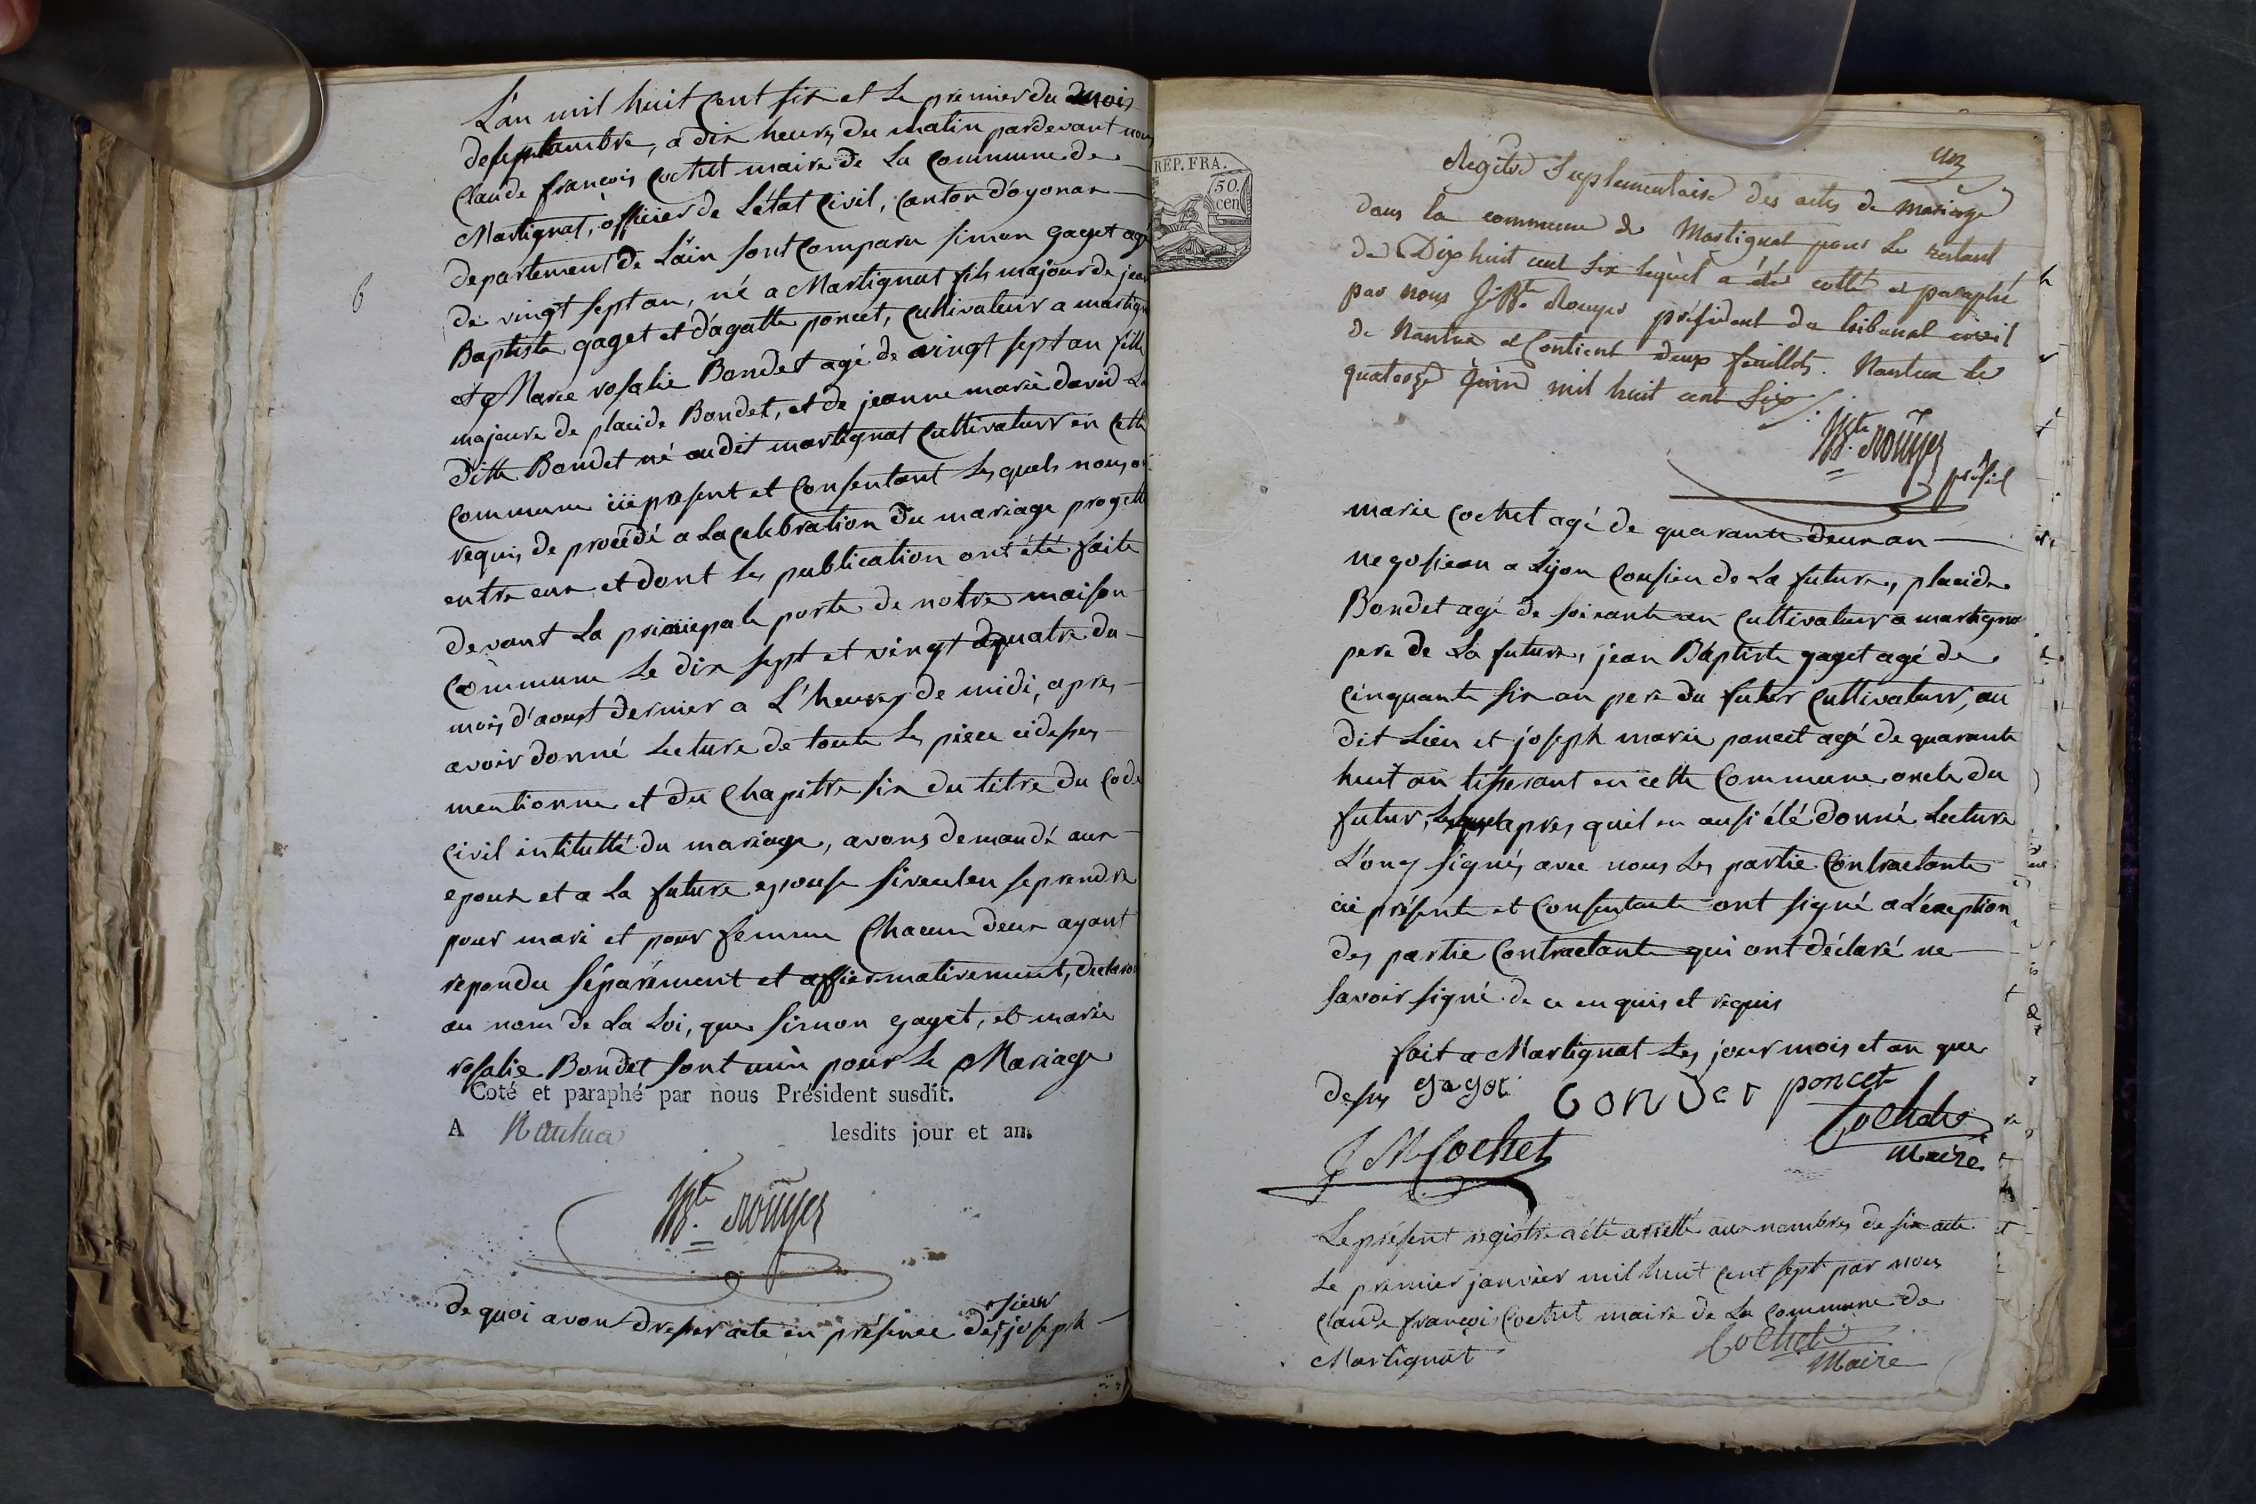 6
L'an mil huit Cent six et le premier du mois
de septambre, a dix heures du matin pardevant nous
Claude françois Cochet maire de La Commune de
Martignat, officier de L'état Civil, Canton d'oyonax
departement de L'ain sont Comparu simon gaget agé
de vingt sept an, né a Martignat fils majour de jean
Baptiste gaget et d'agatte poncet, Cultivateur a martigna
et Marie rosalie Bondet agé de vingt sept an fille
majeure de placide Bondet, et de jeanne marie david La
ditte Bondet né audit martignat Cultivateur en Cette
Commune icii present et Consentant Les quels nous on
requis de procédé a La Celebration du mariage progetté
entre eux et dont les publication ont été faite
devant La principale porte de notre maison
Commune le dix sept et vingt quatre du
mois d'aoust dernier a L'heures de midi, apres
avoir donné Lecture de toute les piece cidesus
mentionne et du Chapitre six du titre du Code
Civil intitullé du mariage, avons demandé aux
epoux et a La future epouse si veulen se prendre
pour mari et pour femme Chacun deux ayant
repondu séparément et affiermativement, declaron
au nom de La Loi, que simon gaget, et marie
rosalie Bondet sont unis pour le Mariage
Coté et paraphé par nous Président susdit.
A Nantua lesdits jour et an.
JBte. Rouyer
de quoi avons dresser acte en présence des sieur joseph
REP. FRA.
50.
cen
un
Registre Suplementaire des actes de mariage
dans la commune de Martignat pour le restant
de Dix huit cent six lequel a été cotté et paraphé
par nous J. Bte. Rouyer président du tribunal civil
de Nantua et Contient deux feuillets. Nantua le
quatorze juin mil huit cent six
JBte. Rouyer
présid
marie Cochet agé de quarante deux an
negosiean a Lyon Cousien de La future, placide
Bondet agé de soixante an Cultivateur a martigna
pere de La future, jean Baptiste gaget agé de
Cinquante six an pere du futur Cultivateur, au
dit Lieu et joseph marie poncet agé de quarante
huit an tisserant en cette Commune oncle du
futur, apres quil en ausi été donné Lecture
L'ons signés avec nous Les partie Contractante
icii présente et Consentante ont signé a L'exception
des partie Contractante qui ont déclaré ne
savoir signé de ce enquis et requis
fait a Martignat Les jour mois et an que
desus gaget Bondet poncet
J M Cochet Cochet
Maire
Le présent registre a été arretté aux nombres de six acte
Le premier janvier mil huit Cent sept par nous
Claude françois Cochet maire de La Commune de
Martignat Cochet
Maire